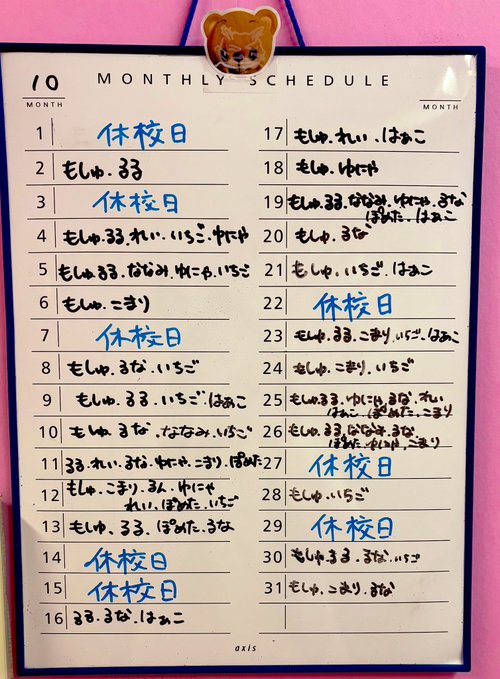 10 MONTHLY SCHEDULE
MONTH
MONTH
1 休校日
2 もしゅ.るる
3 休校日
4 もしゅ.るる.れい.いちご.ゆにゃ
5 もしゅ.るる.ななみ.ゆにゃ.いちご
6 もしゅ.こまり
7 休校日
8 もしゅ.るな.いちご
9 もしゅ.るる.いちご.はぁこ
10 もしゅ.るな.ななみ.いちご
11 るる.れい.るな.ゆにゃ.こまり.ぽめた
12 もしゅ.こまり.るん.ゆにゃ
れい.ぽめた.いちご
13 もしゅ.るる.ぽめた.るな
14 休校日
15 休校日
16 るる.るな.はぁこ
17 もしゅ.れい.はぁこ
18 もしゅ.ゆにゃ
19 もしゅ.るる.ななみ.ゆにゃ.るな
ぽめた.はぁこ
20 もしゅ.るな
21 もしゅ.いちご.はぁこ
22 休校日
23 もしゅ.るる.こまり.いちご.はぁこ
24 もしゅ.こまり.いちご
25 もしゅ.るる.ゆにゃ.るな.れい
はぁこ.ぽめた.こまり
26 もしゅ.るる.ななみ.るな
ぽめた.ゆにゃ.こまり
27 休校日
28 もしゅ.いちご
29 休校日
30 もしゅ.るる.るな.いちご
31 もしゅ.こまり.るな
axis